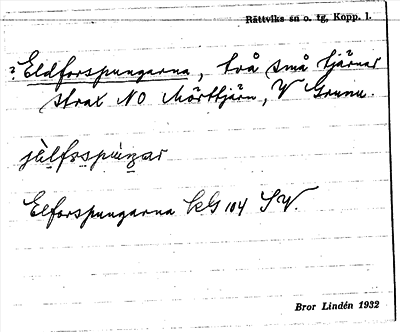 Rättviks sn o. tg, Kopp. l.
? Eldforspungarna, två små tjärnar
strax NO Mörttjärn, V Grunu.
jälfsspúŋar
Elforspungarna kG 104 SV.
Bror Lindén 1932